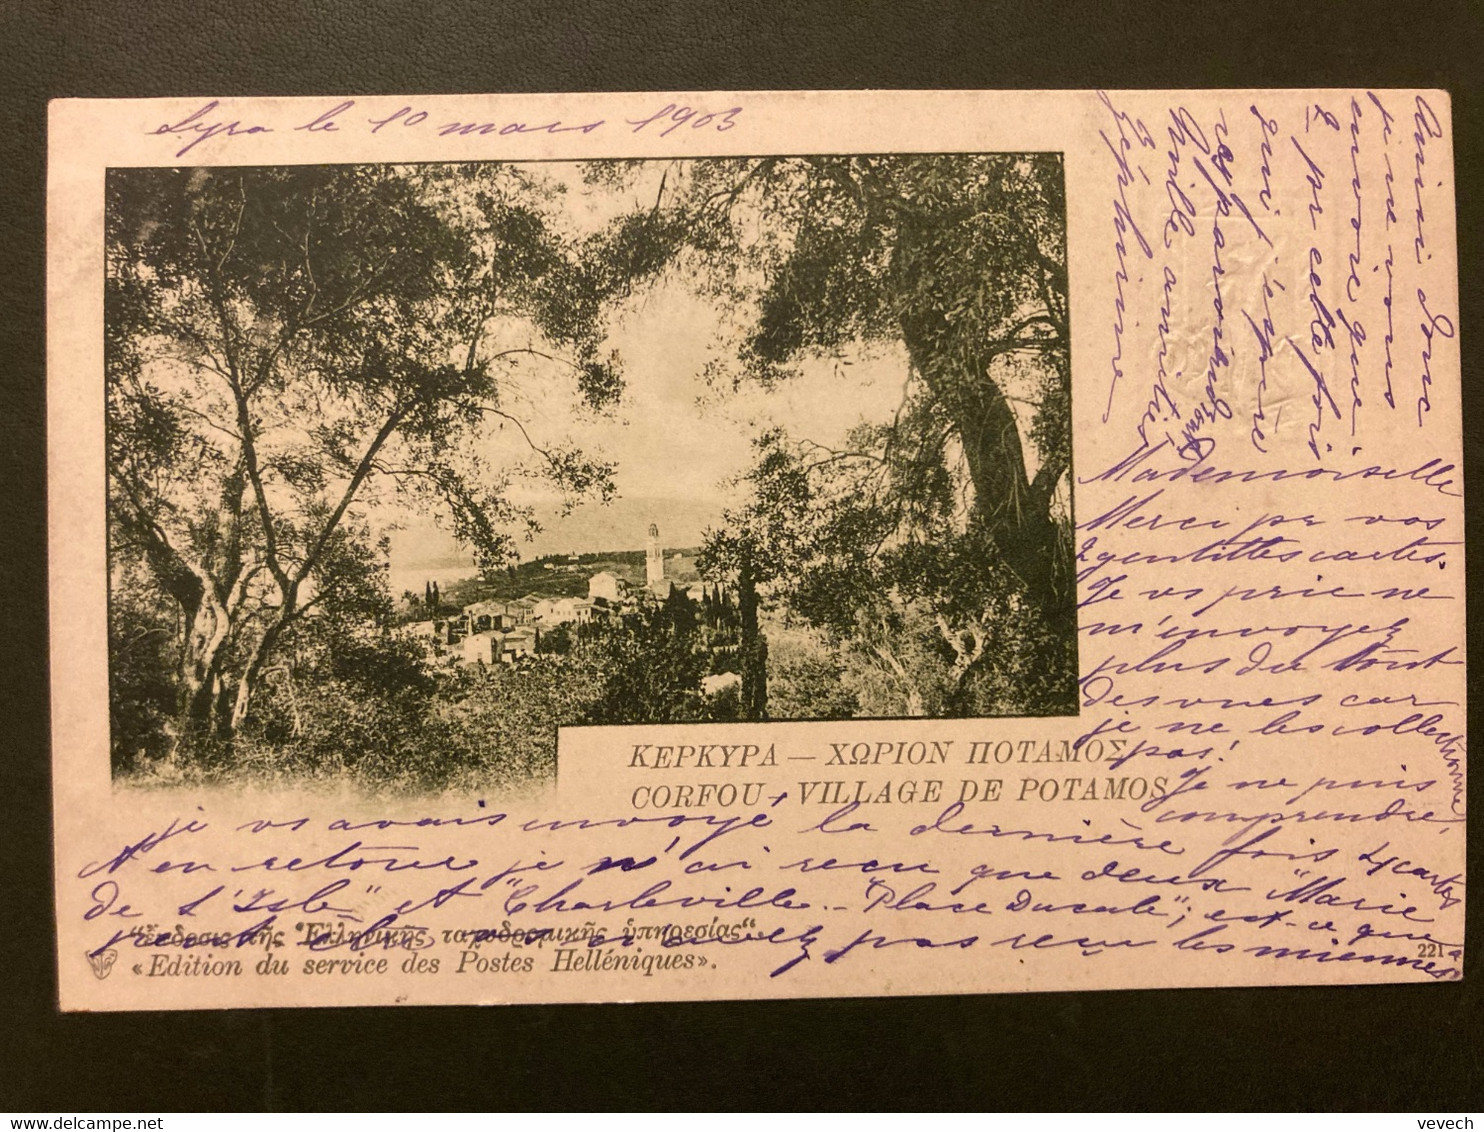 Syra le 10 mars 1903
Mademoiselle
Merci pr vos
2 gentilles cartes.
Je vs prie ne
m'envoyez
plus du tout
des vues car
je ne les collectionne
pas!
Je ne puis
comprendre,
je vs avais envoyé la dernière fois 4 cartes
et en retour je n'ai reçu que deux "Marie
de l'Isle" et "Charleville - Place Ducale"; est-ce que
vous n'avez pas reçu les miennes
Ainsi donc
je ne vous
envoie que
2 pr cette fois
qui j'espère
vs parviendront
Mille amitiés
Zéphirine
ΚΕΡΚΥΡΑ — ΧΩΡΙΟΝ ΠΟΤΑΜΟΣ
CORFOU — VILLAGE DE POTAMOS
"Ἔκδοσις τῆς Ἑλληνικῆς ταχυδρομικῆς ὑπηρεσίας".
«Edition du service des Postes Helléniques».
221
vevech